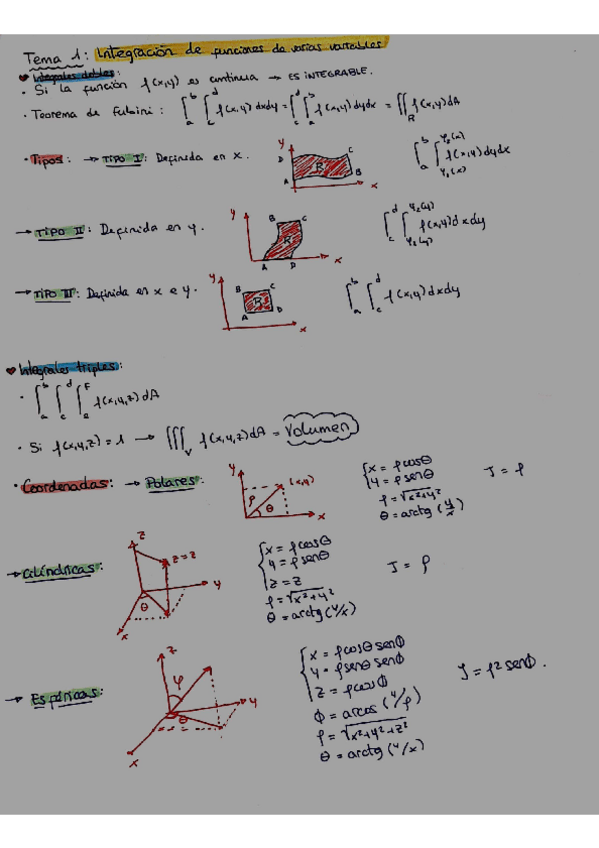 Tema 1: Integración de funciones de varias variables
♥ Integrales dobles:
· Si la función f(x,y) es continua → ES INTEGRABLE.
· Teorema de Fubini: ∫_a^b ∫_c^d f(x,y) dxdy = ∫_c^d ∫_a^b f(x,y) dydx = ∬_R f(x,y) dA
· Tipos: → TIPO I: Definida en x.
y D C A B R x
∫_a^b ∫_{φ1(x)}^{φ2(x)} f(x,y) dydx
→ TIPO II: Definida en y.
y B C R A D x
∫_c^d ∫_{φ1(y)}^{φ2(y)} f(x,y) dxdy
→ TIPO III: Definida en x e y.
y B C R A D x
∫_a^b ∫_c^d f(x,y) dxdy
♥ Integrales triples:
· ∫_a^b ∫_c^d ∫_e^F f(x,y,z) dA
· Si f(x,y,z) = 1 → ∭_V f(x,y,z) dA = Volumen
· Coordenadas: → Polares:
y ρ θ (x,y) x
x = ρ cosθ
y = ρ senθ
ρ = √x²+y²
θ = arctg (y/x)
J = ρ
→ Cilíndricas:
z z=z y θ x
x = ρ cosθ
y = ρ senθ
z = z
ρ = √x²+y²
θ = arctg (y/x)
J = ρ
→ Esféricas:
z φ y θ x
x = ρ cosθ senϕ
y = ρ senθ senϕ
z = ρ cosϕ
ϕ = arcos (y/ρ)
ρ = √x²+y²+z²
θ = arctg (y/x)
J = ρ2 senϕ.